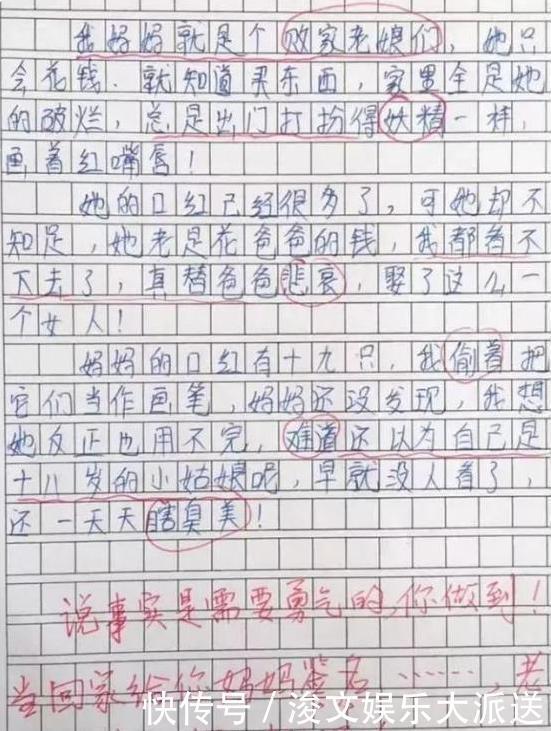 我妈妈就是个败家老娘们，她只
会花钱．就知道买东西，家里全是她
的破烂，总是出门打扮得妖精一样，
画着红嘴唇！
她的口红已经很多了，可她却不
知足，她老是花爸爸的钱，我都看不
下去了，真替爸爸悲哀，娶了这么一
个女人！
妈妈的口红有十九只，我偷着把
它们当作画笔，妈妈还没发现，我想
她反正也用不完，难道还以为自己是
十八岁的小姑娘呢，早就没人看了，
还一天天瞎臭美！
说事实是需要勇气的，你做到！
当回家给你妈妈签名……，老
快传号／浚文娱乐大派送